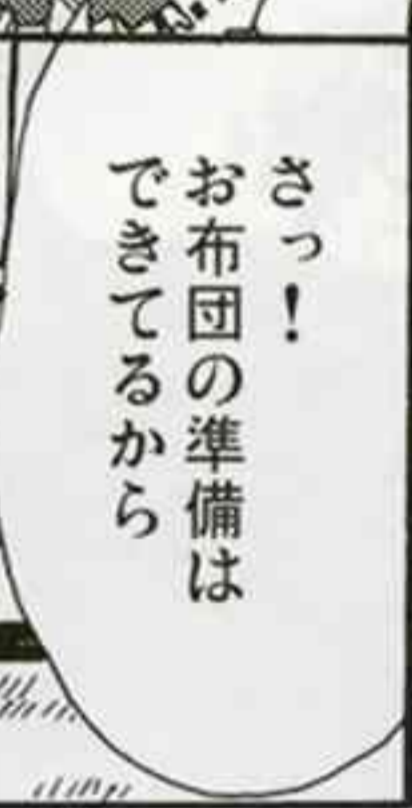 さっ！
お布団の準備は
できてるから